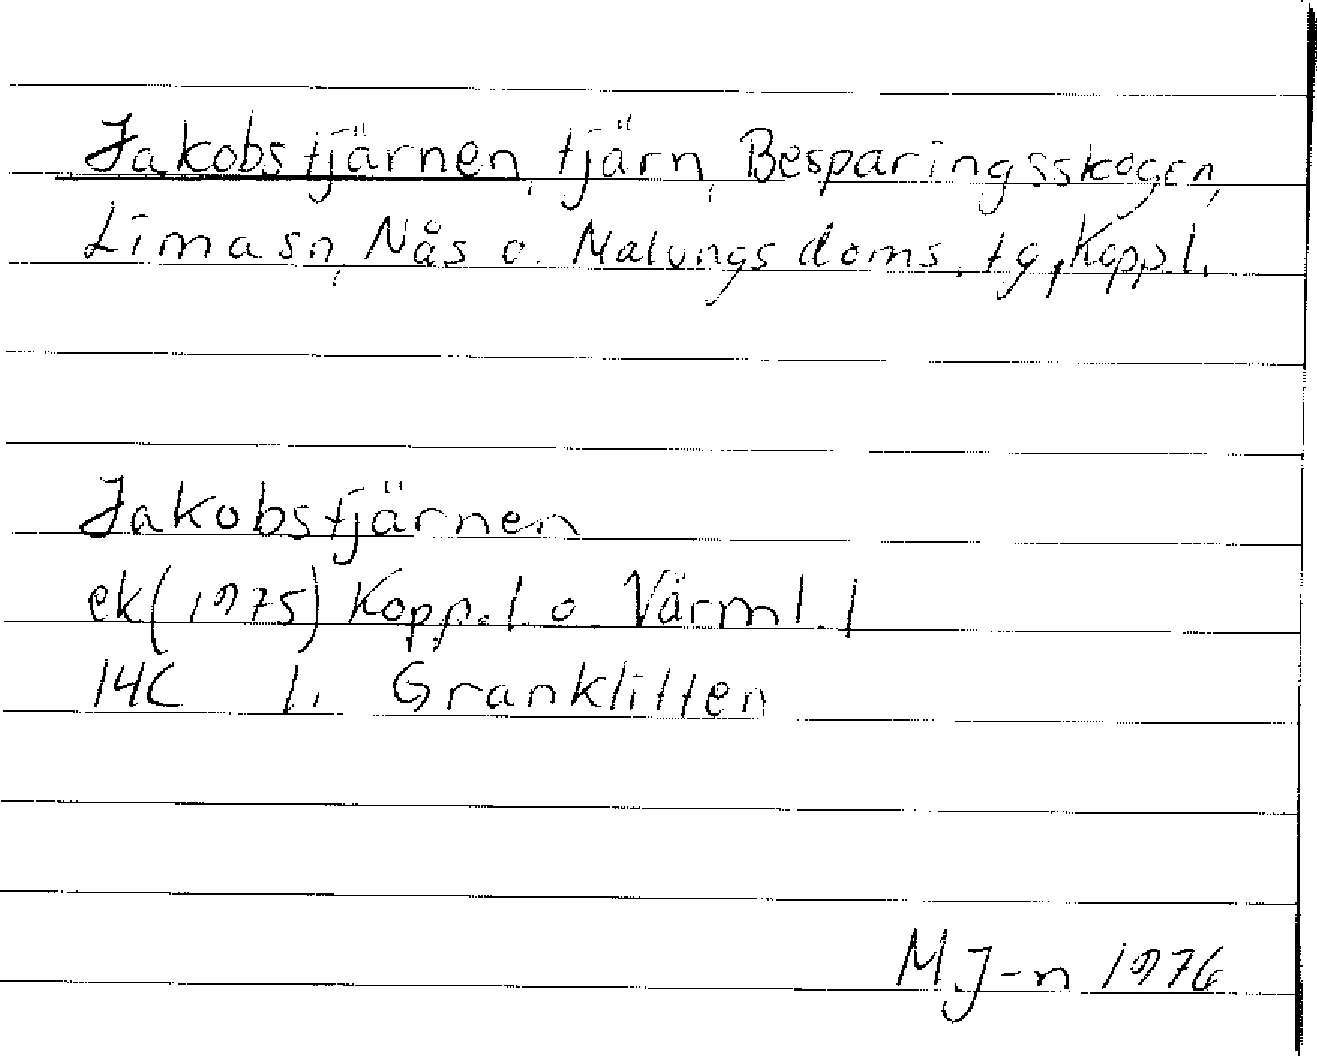 Jakobstjärnen, tjärn, Besparingsskogen,
Lima sn, Nås o. Malungs doms. tg, Kopp.l.
Jakobstjärnen
ek (1975) Kopp.l. o. Värml. l
14C l. Granklitten
M.J-n 1976